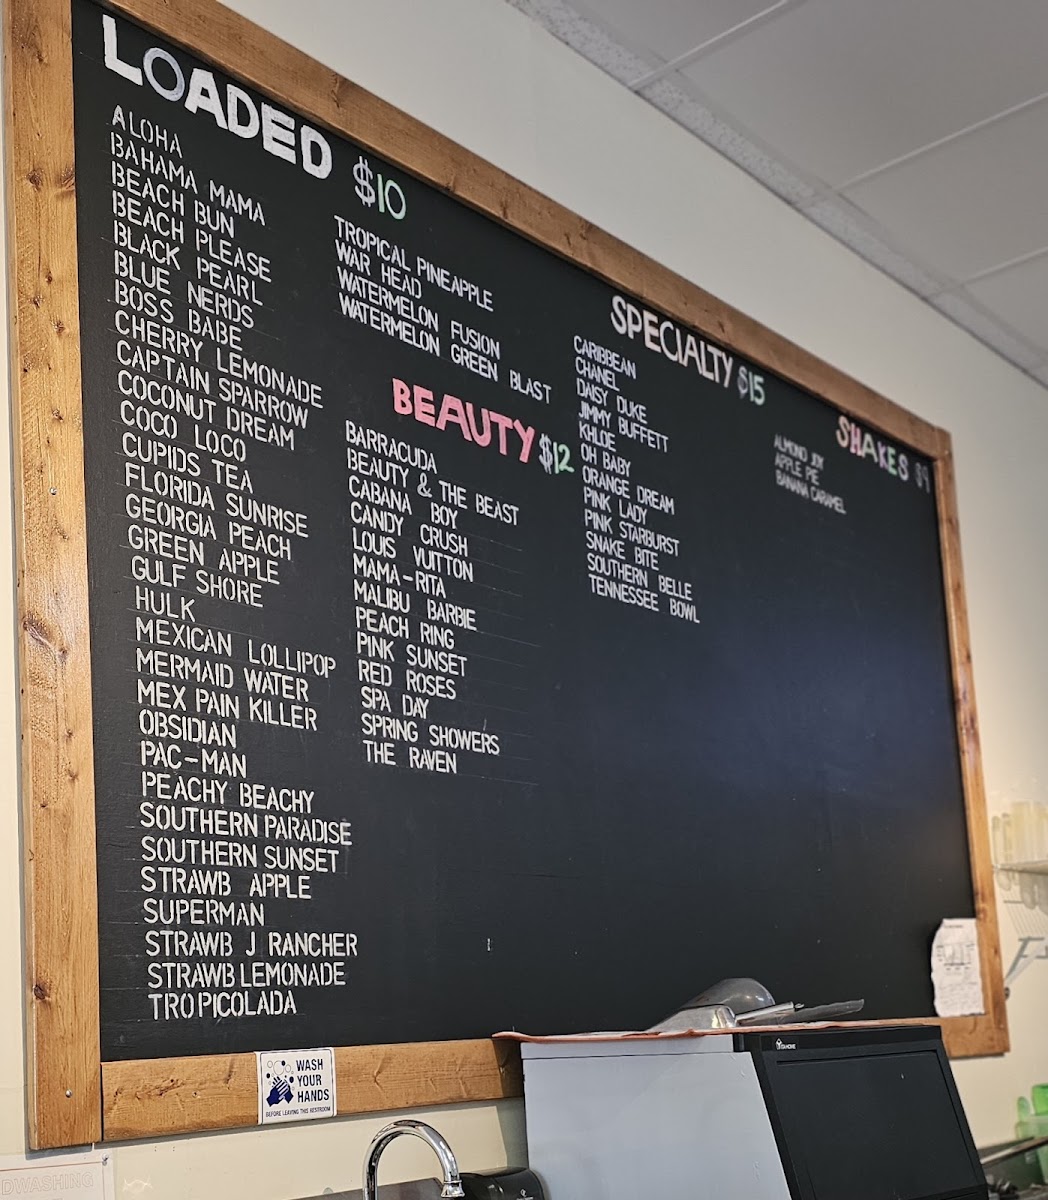 LOADED $10
ALOHA
BAHAMA MAMA
BEACH BUN
BEACH PLEASE
BLACK PEARL
BLUE NERDS
BOSS BABE
CHERRY LEMONADE
CAPTAIN SPARROW
COCONUT DREAM
COCO LOCO
CUPIDS TEA
FLORIDA SUNRISE
GEORGIA PEACH
GREEN APPLE
GULF SHORE
HULK
MEXICAN LOLLIPOP
MERMAID WATER
MEX PAIN KILLER
OBSIDIAN
PAC-MAN
PEACHY BEACHY
SOUTHERN PARADISE
SOUTHERN SUNSET
STRAWB APPLE
SUPERMAN
STRAWB J RANCHER
STRAWB LEMONADE
TROPICOLADA
TROPICAL PINEAPPLE
WAR HEAD
WATERMELON FUSION
WATERMELON GREEN BLAST
BEAUTY $12
BARRACUDA
BEAUTY & THE BEAST
CABANA BOY
CANDY CRUSH
LOUIS VUITTON
MAMA-RITA
MALIBU BARBIE
PEACH RING
PINK SUNSET
RED ROSES
SPA DAY
SPRING SHOWERS
THE RAVEN
SPECIALTY $15
CARIBBEAN
CHANEL
DAISY DUKE
JIMMY BUFFETT
KHLOE
OH BABY
ORANGE DREAM
PINK LADY
PINK STARBURST
SNAKE BITE
SOUTHERN BELLE
TENNESSEE BOWL
SHAKES $9
ALMOND JOY
APPLE PIE
BANANA CARAMEL
WASH
YOUR
HANDS
BEFORE LEAVING THIS RESTROOM
DWASHING